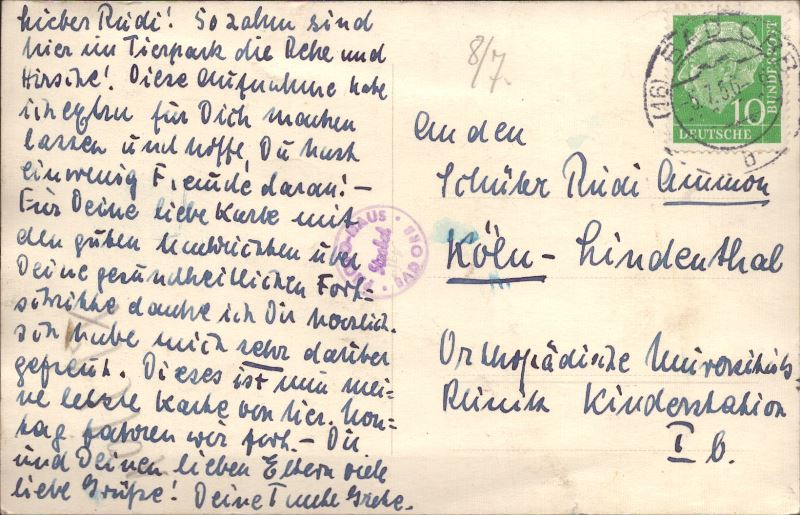 Lieber Rudi! So zahm sind
hier im Tierpark die Rehe und
Hirsche! Diese Aufnahme habe
ich extra für Dich machen
lassen und hoffe, Du hast
ein wenig Freude daran! –
Für Deine liebe Karte mit
den guten Nachrichten über
Deine gesundheitlichen Fort-
schritte danke ich Dir herzlich.
Ich habe mich sehr darüber
gefreut. Dieses ist nun mei-
ne letzte Karte von hier. Mon-
tag fahren wir fort. – Dir
und Deinen lieben Eltern viele
liebe Grüße! Deine Tante Grete.
8/7.
(16) BAD ORB
5.7.56
b
10
DEUTSCHE
BUNDESPOST
PHOTO-HAUS
BAD ORB
An den
Schüler Rudi Ammon
Köln-Lindenthal
Orthopädische Universitäts
Klinik Kinderstation
I b.